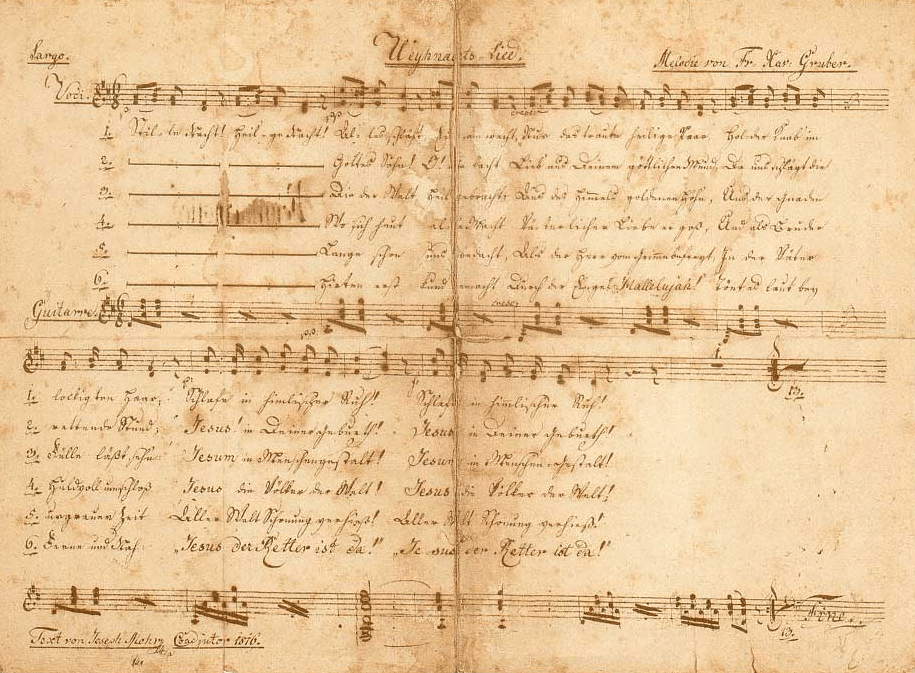 Largo.
Weyhnachts-Lied.
Melodie von Fr. Xav. Gruber.
Voci.
cresc:
1. Stil-le Nacht! Heil-ge Nacht! Al-les schläft; Ein-sam wacht; Nur das traute heilige Paar, Holder Knab im
2. Gottes Sohn! O! wie lacht Lieb aus Deinem göttlichen Mund, Da uns schlägt die
3. Die der Welt Heil gebracht; Aus des Himmels goldenen Höhn, Aus der Gnaden
4. Wo sich heut alle Macht Väterlicher Liebe ergoß, Und als Bruder
5. Lange schon uns bedacht, Als der Herr vom Grimme befreyt, In der Väter
6. Hirten erst kund gemacht Durch der Engel Hallelujah! Tönt es laut bey
Guitarre.
cresc:
1. lockigten Haar; Schlafe in himlischer Ruh! Schlafe in himlischer Ruh!
13.
2. rettende Stund; Jesus! in Deiner Geburth! Jesus in Deiner Geburth!
3. Fülle läßt sehn Jesum in Menschengestalt! Jesum in Menschen-Gestalt!
4. Huldvoll umschloß Jesus die Völker der Welt! Jesus die Völker der Welt!
5. urgrauer Zeit Aller Welt Schonung verhieß! Aller Welt Schonung verhieß!
6. Ferne und Nah: „Jesus der Retter ist da!" „Jesus der Retter ist da!"
13.
Fine.
Text von Joseph Mohr Coadjutor 1816.